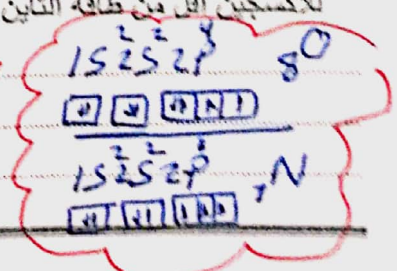 للأكسجين أقل من طاقة التأين
1S² 2S² 2P⁴ ₈O
1S² 2S² 2P³ ₇N